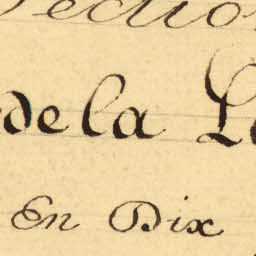 Section
de la
En Dix